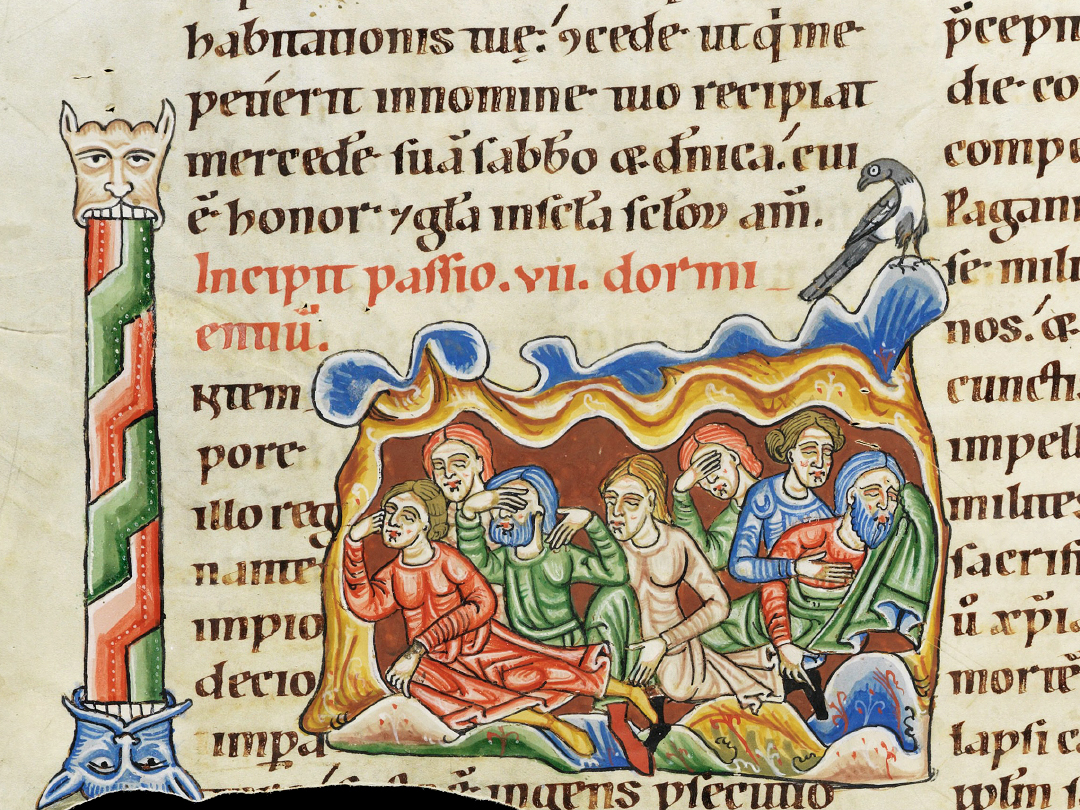 habitationis tuę: ꝯcede ut q̇ me
petierit in nomine tuo recipiat
mercedē suā sabb̄o ⁊ dn̄ica. cui
ē honor ⁊ gl̄a in scl̄a scl̄oꝝ am̄.
Incipit passio .vii. dormi
entiū.
tem
pore
illo reg
nante
impio
decio
impa
ingens psecutio
die co
comp
Pagani
se mili
nos. ⁊
cuncti
impell
milites
sacrifi
ů xp̄i
morte
lapsi